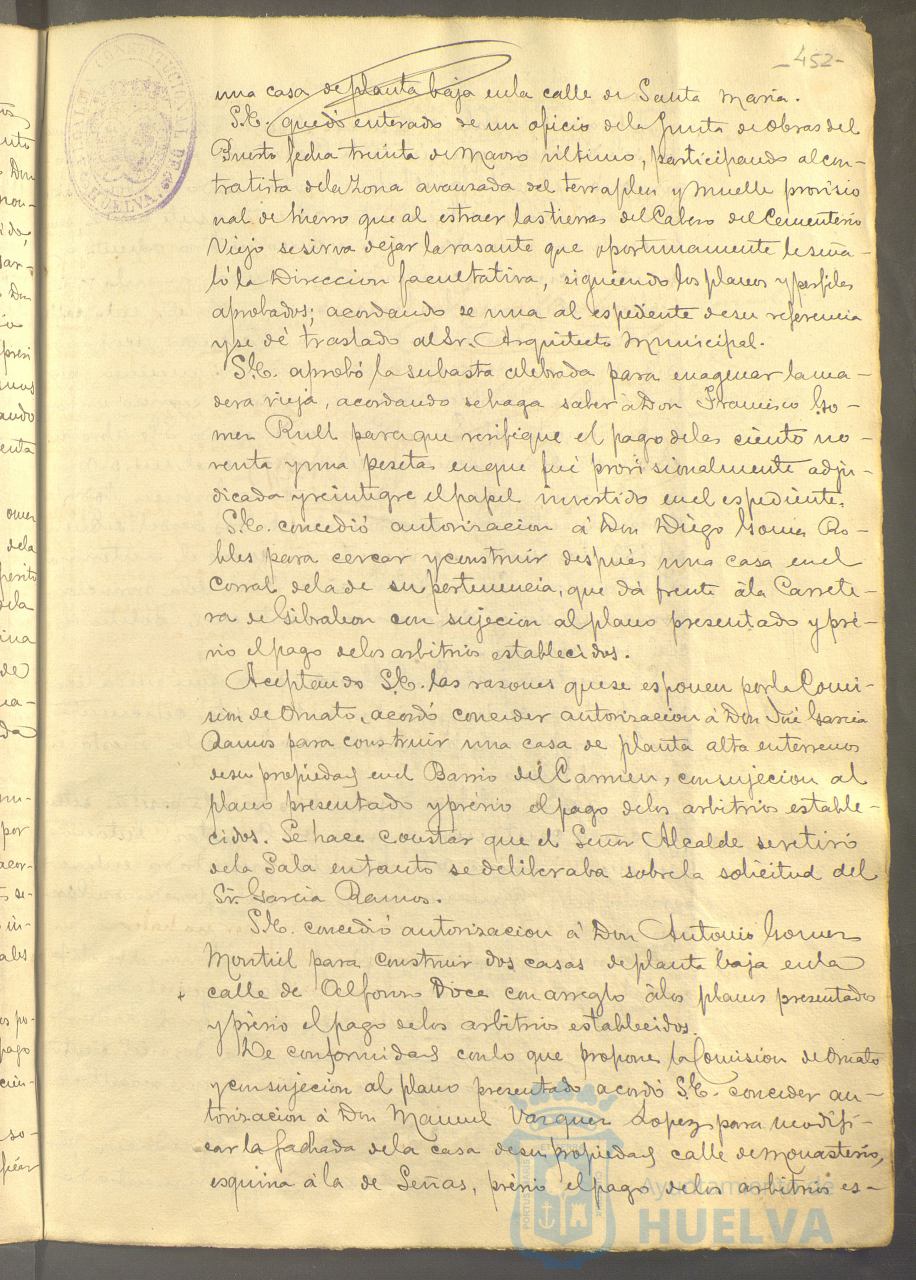 -452-
una casa de planta baja enla calle de Santa María.
S.E. quedó enterado de un oficio dela Junta de Obras del
Puerto fecha treinta de Marzo último, participando al con-
tratista dela zona avanzada del terraplen y muelle provisio
nal de hierro que al estraer las tierras del Cabezo del Cementerio
Viejo se sirva dejar la rasante que oportunamente le seña-
ló la Direccion facultativa, siguiendo los planos y perfiles
aprobados; acordando se una al espediente de su referencia
y se dé traslado al Sr. Arquitecto Municipal.
S.E. aprobó la subasta celebrada para enagenar la ma-
dera vieja, acordando se haga saber á Don Francisco Go-
mez Rull para que verifique el pago delas ciento no-
venta y una pesetas en que fué provisionalmente adju-
dicada y reintegre el papel invertido en el espediente.
S.E. concedió autorizacion á Don Diego Gomez Ro-
bles para cercar y construir despues una casa en el
corral dela de su pertenencia, que dá frente á la Carrete-
ra de Gibraleon con sujecion al plano presentado y pré-
vio el pago delos arbitrios establecidos.
Aceptando S.E. las razones que se esponen por la Comi-
sion de Ornato, acordó conceder autorizacion á Don José Garcia
Ramos para construir una casa de planta alta en terrenos
de su propiedad en el Barrio del Carmen, con sujecion al
plano presentado y prévio el pago delos arbitrios estable-
cidos. Se hace constar que el Señor Alcalde se retiró
dela Sala en tanto se deliberaba sobre la solicitud del
Sr. Garcia Ramos.
S.E. concedió autorizacion á Don Antonio Gomez
Montiel para construir dos casas de planta baja en la
calle de Alfonso Doce con arreglo á los planos presentados
y prévio el pago delos arbitrios establecidos.
De conformidad con lo que propone la Comision de Ornato
y con sujecion al plano presentado acordó S.E. conceder au-
torizacion á Don Manuel Vazquez Lopez para modifi-
car la fachada dela casa de su propiedad calle de Monasterio,
esquina á la de Señas, prévio el pago delos arbitrios es-
Ayuntamiento de
HUELVA